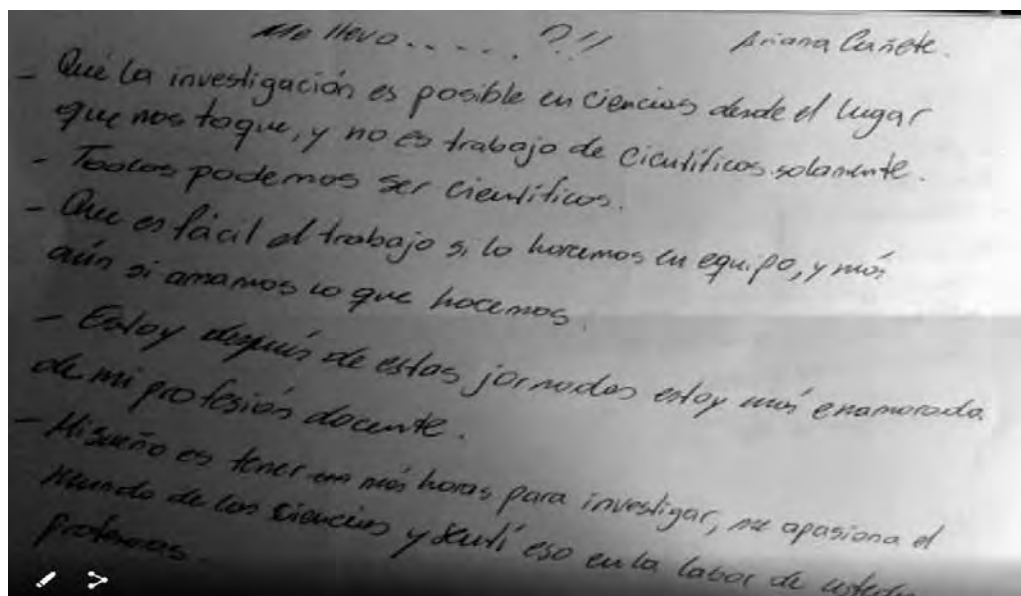 Me llevo...... ?!! Ariana Cañete.
- Que la investigación es posible en ciencias desde el lugar
que nos toque, y no es trabajo de científicos solamente.
- Todos podemos ser científicos.
- Que es fácil el trabajo si lo hacemos en equipo, y más
aún si amamos lo que hacemos.
- Estoy después de estas jornadas estoy más enamorada
de mi profesión docente.
- Mi sueño es tener más horas para investigar, me apasiona el
mundo de las ciencias y sentí eso en la labor de ustedes
profesoras.